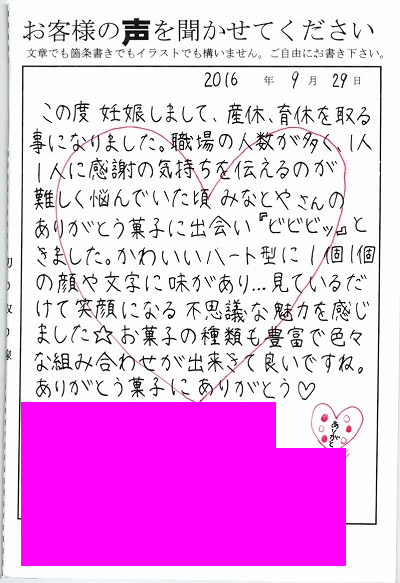 お客様の声を聞かせてください
文章でも箇条書きでもイラストでも構いません。ご自由にお書き下さい。
2016 年 9月 29日
この度 妊娠しまして、産休、育休を取る
事になりました。職場の人数が多く、1人
1人に感謝の気持ちを伝えるのが
難しく悩んでいた頃 みなとやさんの
ありがとう菓子に出会い『ビビビッ』と
きました。かわいいハート型に 1個1個
の顔や文字に味があり...見ているだ
けで笑顔になる 不思議な魅力を感じ
ました☆お菓子の種類も豊富で色々
な組み合わせが出来きて良いですね。
ありがとう菓子に ありがとう♡
ありがと
切り取り線